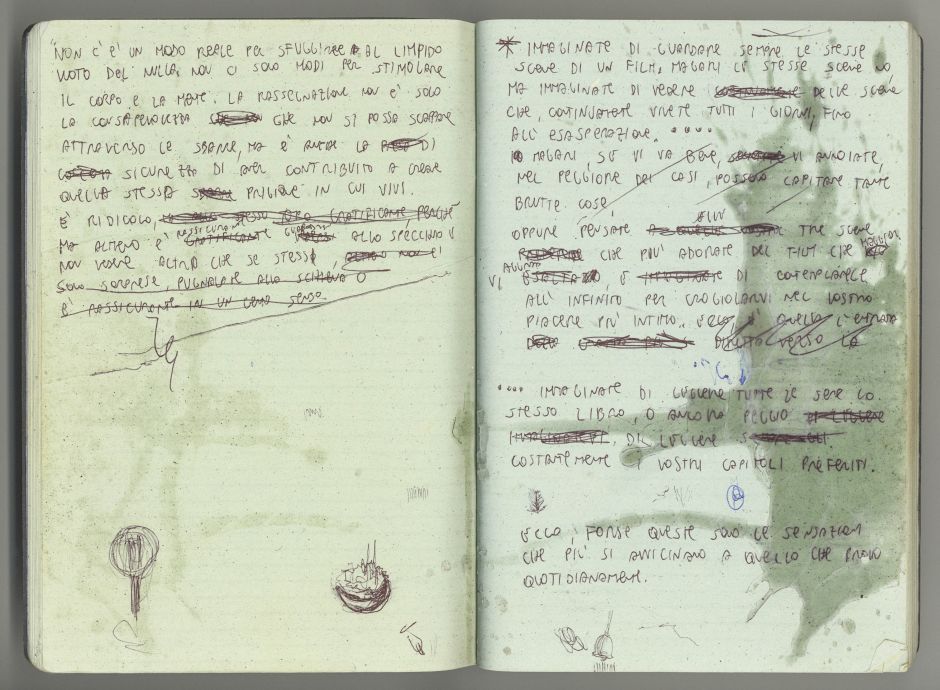 "NON C'È UN MODO REALE PER SFUGGIRE AL LIMPIDO
VUOTO DEL NULLA, NON CI SONO MODI PER STIMOLARE
IL CORPO E LA MENTE. LA RASSEGNAZIONE NON È SOLO
LA CONSAPEVOLEZZA CHE NON SI POSSA SCAPPARE
ATTRAVERSO LE SBARRE, MA È ANCHE LA DI
SICUREZZA DI AVER CONTRIBUITO A CREARE
QUELLA STESSA PRIGIONE IN CUI VIVI.
È RIDICOLO, STESSO GRATIFICANTE PERCHÉ
MA ALMENO È RASSICURANTE GUARDARSI ALLO SPECCHIO E
NON VEDERE ALTRO CHE SE STESSI, NON C'È
SOLO SORPRESE, PUGNALATE ALLA SCHIENA O
È RASSICURANTE IN UN CERTO SENSO
* IMMAGINATE DI GUARDARE SEMPRE LE STESSE
SCENE DI UN FILM, MAGARI LE STESSE SCENE NO
MA IMMAGINATE DI VEDERE DELLE SCENE
CHE, CONTINUAMENTE VIVETE TUTTI I GIORNI, FINO
ALL'ESASPERAZIONE. ....
MAGARI SE VI VA BENE, VI ANNOIATE,
NEL PEGGIORE DEI CASI, POSSONO CAPITARE TANTE
BRUTTE COSE,
OPPURE PENSATE ALLE TRE SCENE
CHE PIÙ ADORATE DEL FILM CHE
VI E DI CONTEMPLARLE
ALL'INFINITO PER CROGIOLARVI NEL VOSTRO
PIACERE PIÙ INTIMO. È QUELLA L'ENTRATA
DIRETTA VERSO LA
.... IMMAGINATE DI LEGGERE TUTTE LE SERE LO
STESSO LIBRO, O ANCORA PEGGIO
DI LEGGERE
COSTANTEMENTE I VOSTRI CAPITOLI PREFERITI.
ECCO, FORSE QUESTE SONO LE SENSAZIONI
CHE PIÙ SI AVVICINANO A QUELLO CHE PROVO
QUOTIDIANAMENTE.